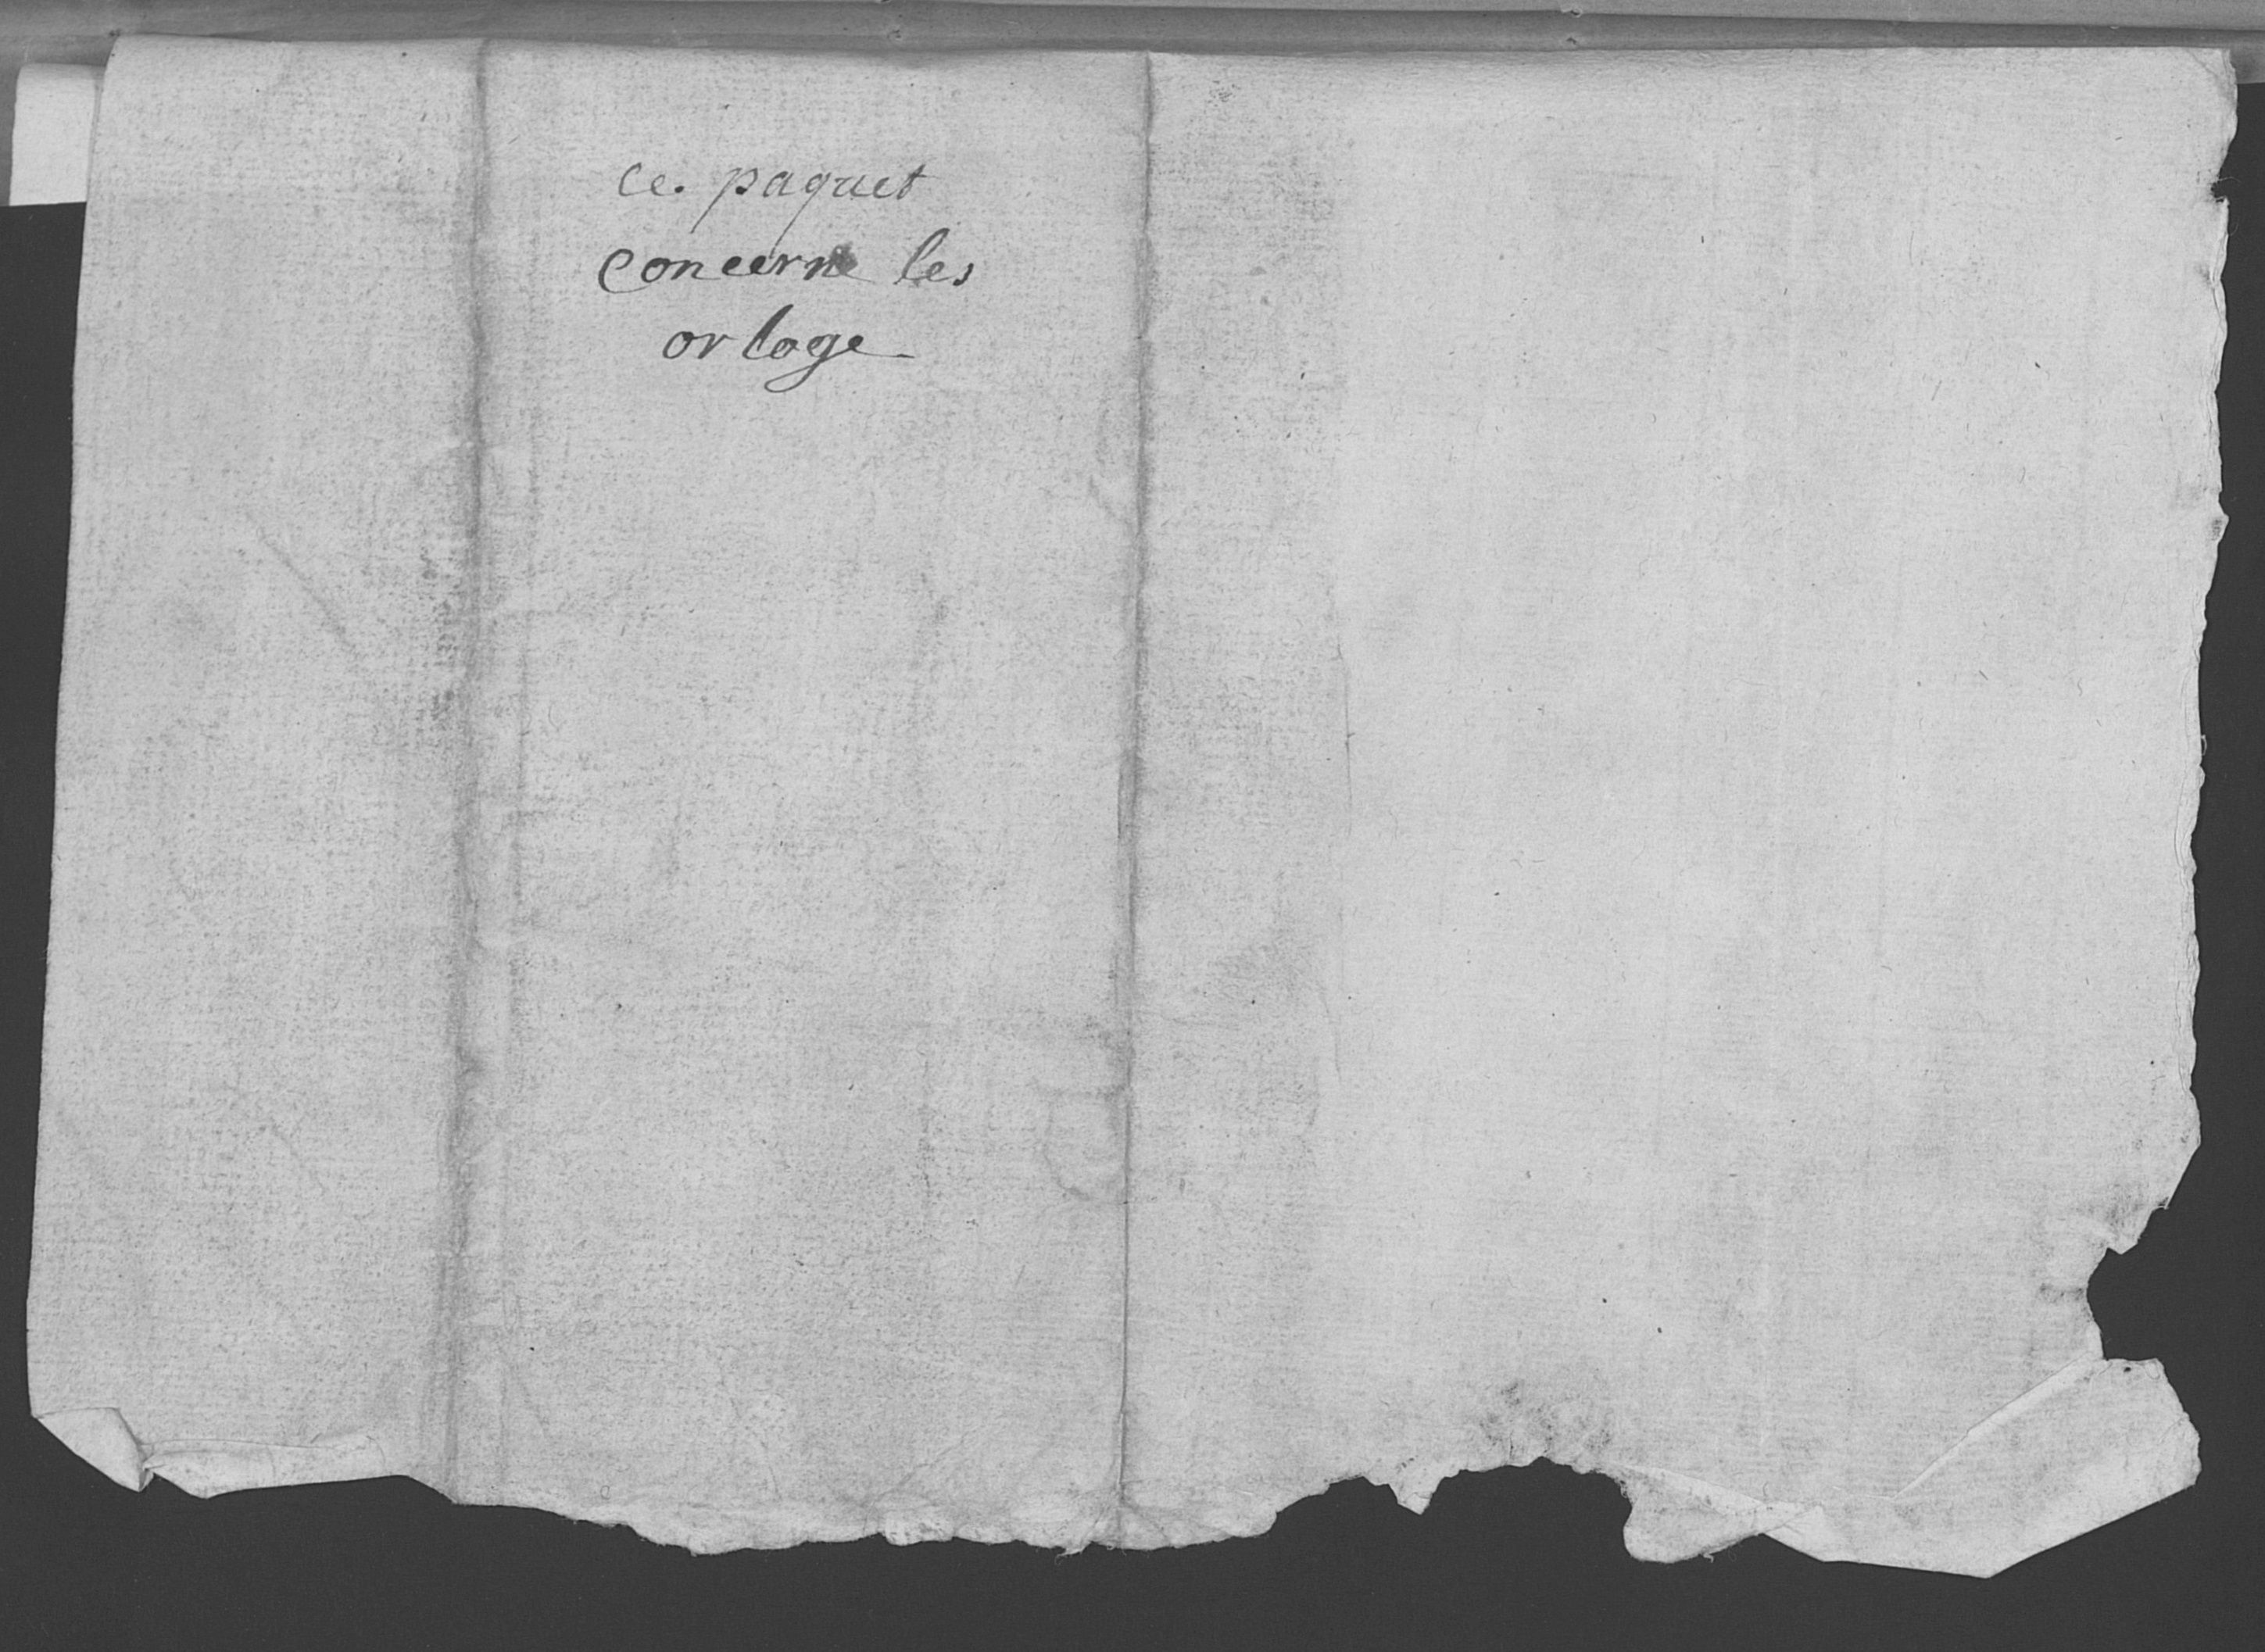 ce. paquet
concerne les
orloge